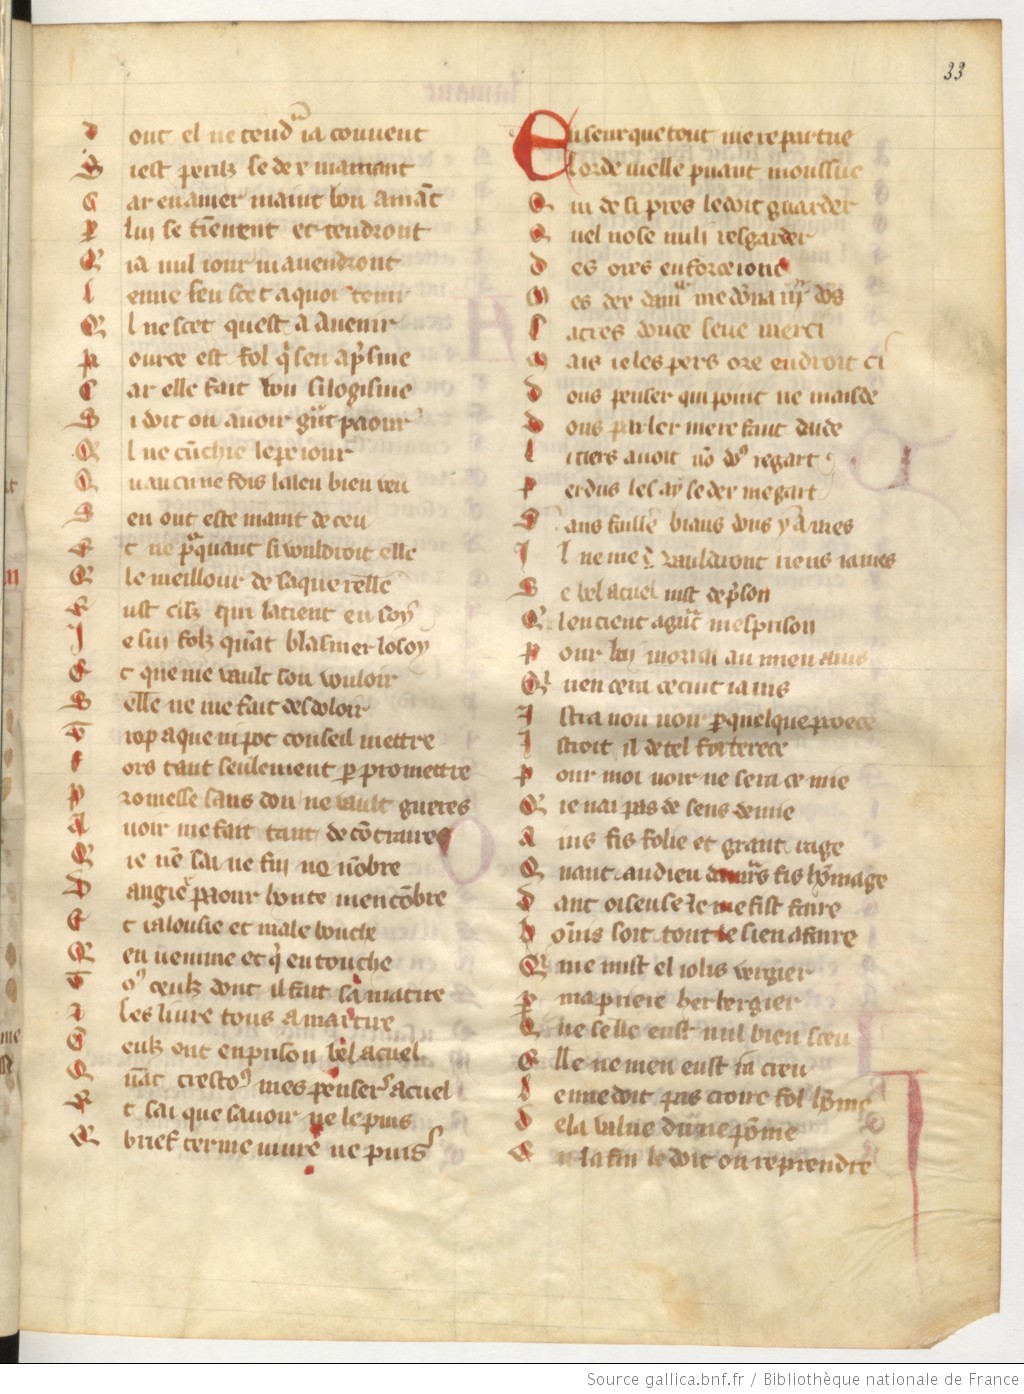 33
D ont el ne tend ia couvent
S iest perilz se de x mamant
C ar en amer maint bon amāt
P lui se tienent et tendront
Q ia nul iour ni avendront
L enne feu scet a quoi tenir
E l ne scet quest a avenir
P ource est fol q̄ sen ap̄sme
C ar elle fait bon silogisme
S i doit on avoir gn̄t paour
Q l ne cūchie le peiour
Q uaucune fois la len bien veu
S en ont este maint deceu
E t ne p̄quant si vouldroit elle
Q le meillour de sa querelle
E ust cilz qui la tient en soy
J e sui folz quāt blasmer losoy
E t que me vault son vouloir
S elle ne me fait desdoloir
T rop a que ni pot conseil mettre
F ors tant seulement p̄ promettre
P romesse sans don ne vault gueres
A voir me fait tant de cōtraires
Q ie nē sai
D angier paour honte mencōbre
E t ialousie et male bouche
Q en venime et q̄ en touche
T o9 ceulz dont il fait sa matire
P les livre tous a martire
C eulz ont en prison bel acuel
Q uāt trestoꝰ mes pensers acuel
E t sai que savoir ne le puis
Q brief terme vivre ne puis
E n seurquetout me repartue
L orde vielle puant moussue
Q ui de si pres le doit guarder
Q uel nose nuli resgarder
D es ores enforce
M es dex damꝰ me dōna iij dōs
G acies douce seue merci
M ais ie les pers ore endroit ci
D ous penser qui point ne maide
D ous parler me refaut dude
L i tiers avoit nō doꝰ regart
P erdus les ay se dex me gart
S ans faille biaus dons y
J l ne me vauldront riens iames
S e bel acuel nist de p̄son
Q len tient a gn̄t mesprison
P our lui morrai au mien avis
Q uen cera ce cuit ia vis
J stra non voir p̄ quelque proece
J stroit il de tel forterece
P our moi voir ne sera ce mie
Q ie nai pas de sens demie
A ins fis folie et grant rage
Q uant au dieu damꝰs fis hōmage
D ant oiseuse le me fist faire
H onnis soit tout le sien afaire
Q me mist el iolis vergier
P ma priere herbergier
Q ue selle eust nul bien sceu
E lle ne meu eust ia creu
L enne doit pas croire fol hōme
D e la value dune pōme
A n la fin le doit on reprendre
Source gallica.bnf.fr / Bibliothèque nationale de France